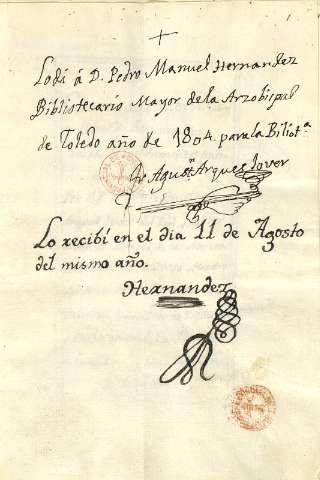 Lo dí á D. Pedro Manuel Hernandez
Bibliotecario Mayor de la Arzobispal
de Toledo año de 1804. para la Bibliot.ª
Fr Agust.n Arques Jover
Lo recibí en el dia 11 de Agosto
del mismo año.
Hernandez